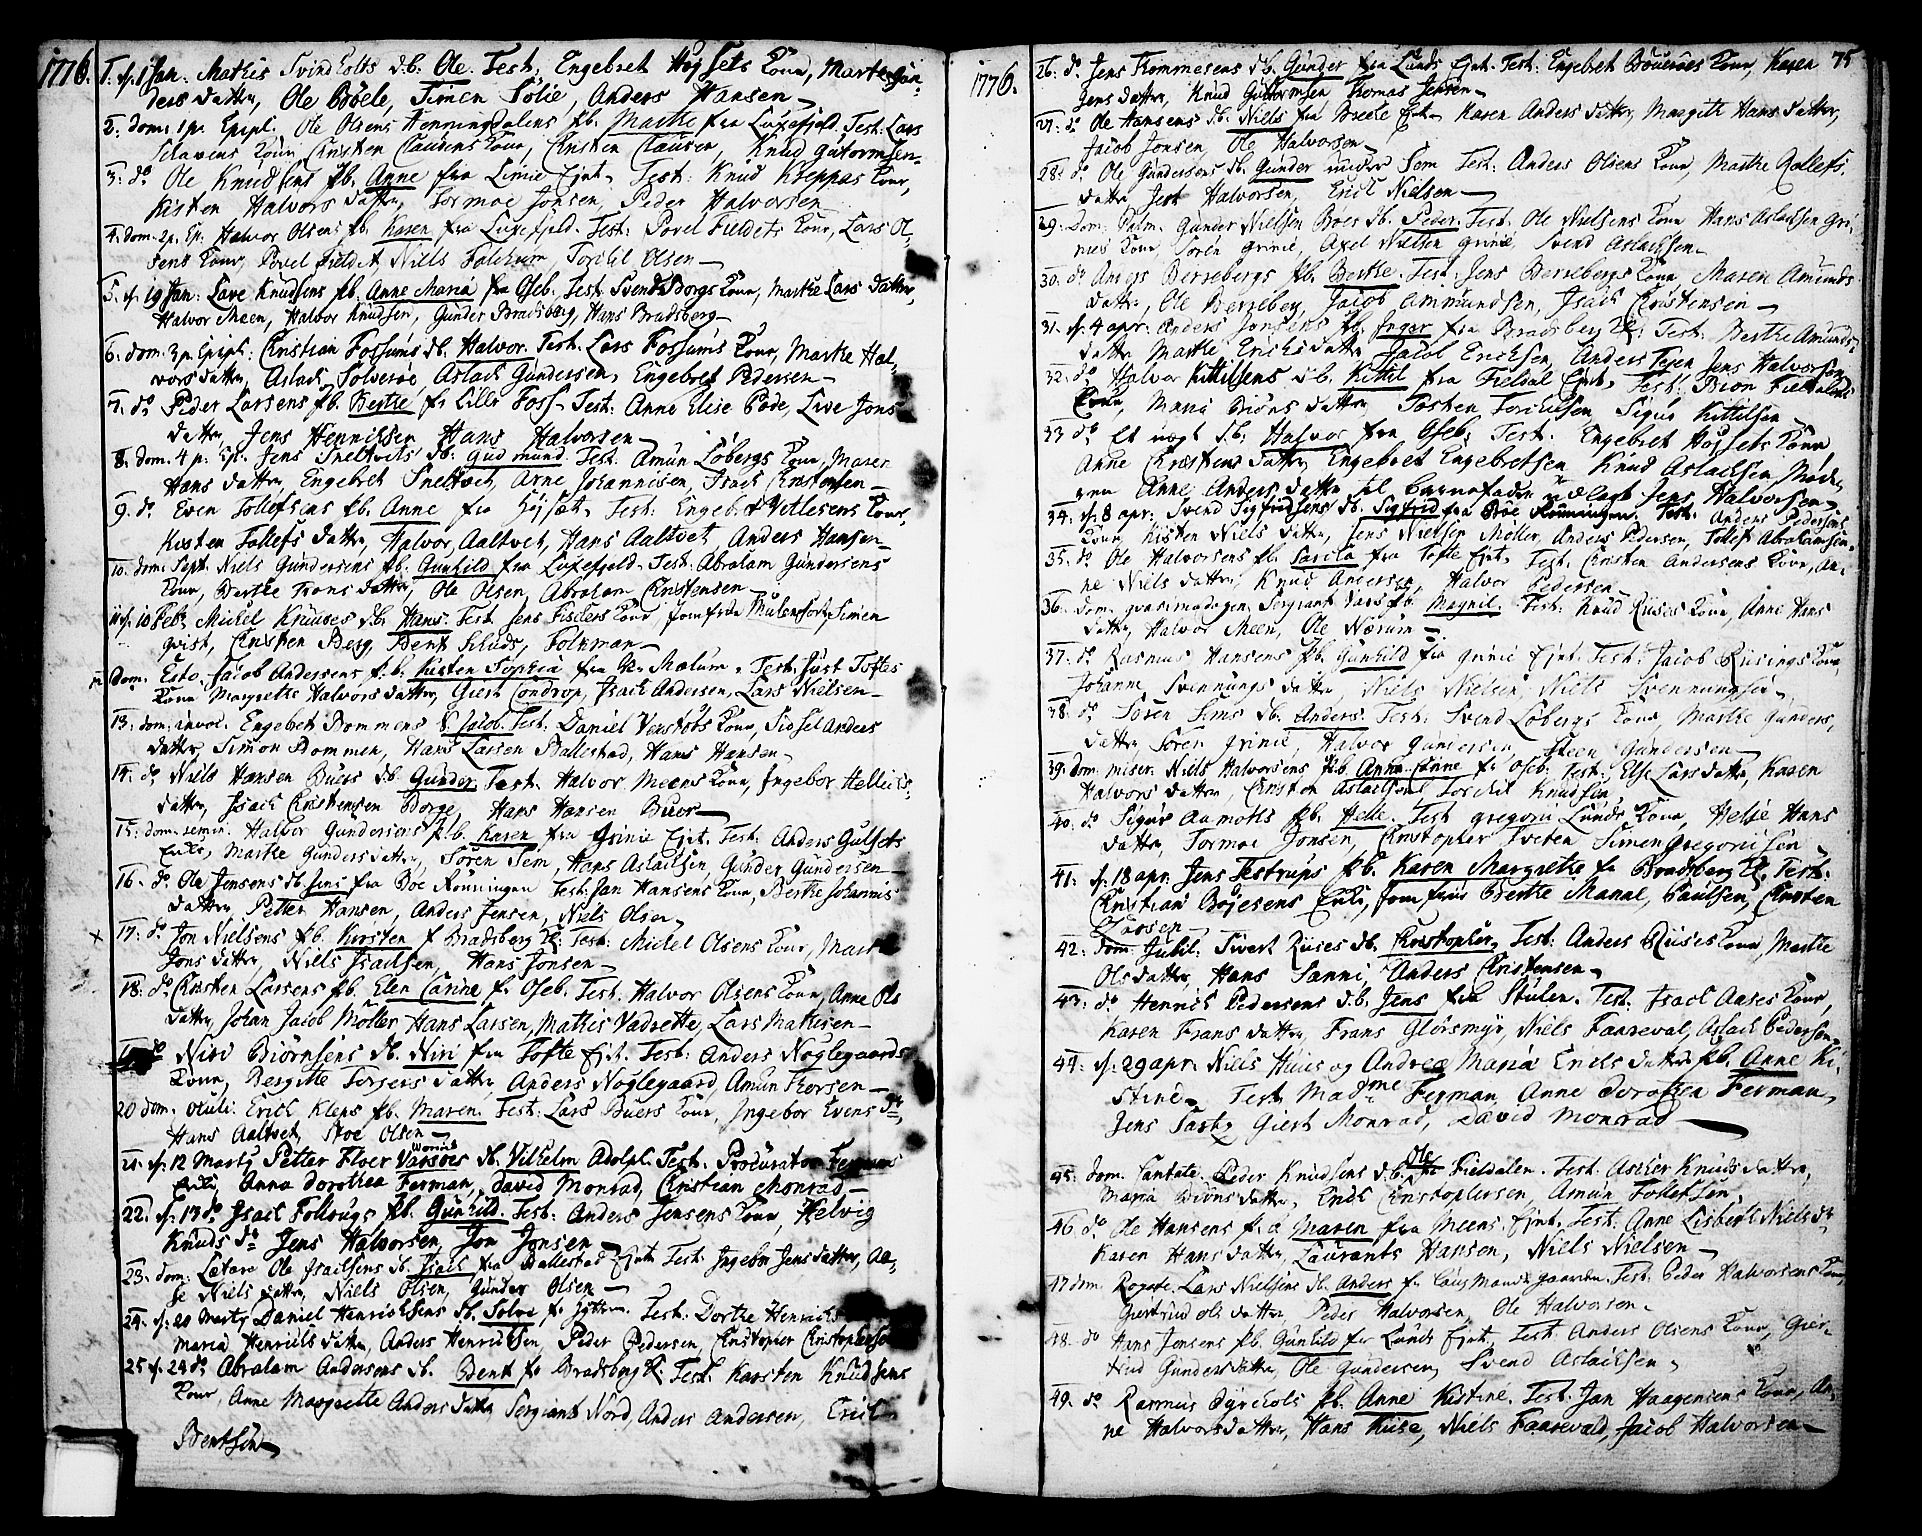 1776.
1. f. 1 Jan. Mathis Svindholts d.b. Ole Test. Engebret Høysets Kone, Marte Gun-
ders datter, Ole Bøele, Simen Solie, Anders Hansen
2. dom. 1 p. Epiph. Ole Olsens Henningdalens p.b. Marthe fra Luxefjeld. Test: Lars
Clavens Kone, Kirsten Clausens Kone, Christen Clausen, Knud Gutormsen
3. do Ole Knudsens p.b. Anne fra Limie Ejet. Test: Knud Kreppas Kone,
Kisten Halvors datter, Tormoe Jonsen, Peder Halvorsen
4. dom. 2 p. Ep. Halvor Olsens p.b. Karen fra Luxefjeld. Test: Povel Fieldets Kone, Lars Ol-
sens Kone, Povel Fieldet, Niels Folchum, Torchel Olsen
5. f. 19 Jan: Lave Knudsens p.b. Anne Maria fra Oseb. Test. Svend Borgs Kone, Marthe Lars datter,
Halvor Meen, Halvor Knudsen, Gunder Bradsberg, Hans Bradsberg
6. dom. 3 p. Epiph: Christian Fossums d.b. Halvor. Test. Lars Fossums Kone, Marthe Hal-
vors datter, Aslach Solverøe, Aslach Gundersen, Engebret Pedersen
7. do Peder Larsens p.b. Berthe fr Lille Foss. Test: Anne Elise Bode, Live Jens
datter, Jens Henrichsen Hans Halvorsen
8. dom. 4 p. Ep. Jens Sneltvets d.b. Gudmund. Test. Amun Løbergs Kone, Maren
Hans datter, Engebret Sneltvet, Arne Johannisen, Isach Christensen
9. do Even Tollefsens p.b. Anne fra Høyset. Test: Engebret Vetlesens Kone,
Kirsten Tollefs datter, Halvor Aaltvet, Hans Aaltvet, Anders Hansen
10. dom: Sept. Niels Gundersens p.b. Gunhild fra Luxefjeld. Test: Abraham Gundersens
Kone, Berthe Frans datter, Ole Olsen, Abraham Christensen
11 f. 10 Feb. Michel Knuuses d.b. Hans. Test Jens Fislers Kone, Jomfrue Mulenfort, Simen
qvist, Christen Berg, Bent Schuds, Folkman
dom. Esto. Jacob Andersens p.b. Kirsten Sophia fra Gr. Mælum. Test: Just Toftes
Kone Margrethe Halvors datter, Giert Condrop, Isach Andersen, Lars Nielsen
13. dom. invoc. Engebret Bommens d.b. Jacob. Test. Daniel Venstøbs Kone, Sidsel Anders
datter, Simon Bommen, Hans Larsen Ballestad, Hans Hansen
14. do Niels Hansen Buers d.b. Gunder. Test. Halvor Meens Kone, Ingebor Hellichs
datter, Isach Christensen Borge, Hans Hansen Buer
15. dom. remin. Halvor Gundersens p.b. Karen fra Grinie Ejet. Test. Anders Gulsets
Enke, Marthe Gunders datter, Søren Sem, Hans Aslachsen, Gunder Gundersen
16. do Ole Jensens d.b. Jens fra Bøe Rønningen Test: Jan Hansens Kone, Berthe Johannis
datter, Petter Hansen, Anders Jensen, Niels Olsen
x 17. do Jon Nielsens p.b. Kirsten f Bradsberg Kl: Test: Michel Olsens Kone, Mart
Jons datter, Niels Isachsen, Hans Jonsen
18. do Christen Larsens p.b. Elen Canne fr. Oseb. Test. Halvor Olsens Kone, Anne Ols
datter, Johan Jacob Møller, Hans Larsen, Mathis Vadrette, Lars Mathisen
19. do Niri Biørnsens d.b. Niri fra Tofte Ejet. Test: Anders Nøglegaards
Kone, Bergitte Torgers datter, Anders Nøglegaard, Amun Thorsen
20 dom. oculi. Erich Kleps p.b. Maren. Test: Lars Buers Kone, Ingebor Evens dr,
Hans Aaltvet, Stoe Olsen
21. f. 12 Marty Petter Floer Varsøes d.b. Vilhelm Adolph. Test. Procurator Ferman
Enke, Anna Dorothea Ferman, David Monrad, Christian Monrad
22. f. 13 do Isach Follaugs p.b. Gunhild. Test: Anders Jensens Kone, Helvig
Knuds dr Jens Halvorsen, Jon Jonsen
23. dom: Lætare Ole Isachsens d.b. Isach fra Ballestad Ejet Test: Ingebor Jens datter, Aa-
se Niels datter, Niels Olsen, Gunder Olsen
24. f. 20 Marty Daniel Henrichsens d.b. Solve fr Jytteren. Test. Dorthe Henrichs
Maria Henrichs datter, Anders Henrichsen, Peder Pedersen, Christopher Christophersen
25 f. 24 do Abraham Andersens d.b. Bent fr Bradsberg Kl. Test. Karsten Knudsens
Kone, Anne Margrette Anders datter Sergiant Nord, Anders Andersen, Erich
Bentsen
1776.
75
26. do Jens Thommesens d.b. Gunder fra Lunds Ejet. Test: Engebret Bøuerøes Kone, Karen
Jens datter, Knud Guttormsen Thomas Jensen
27. do Ole Hansens d.b. Niels fra Brekke Ejet. Karen Anders datter, Margith Hans datter,
Jacob Jonsen, Ole Halvorsen
28. do Ole Gundersens d.b. Gunder under Sem Test: Anders Olsens Kone, Marthe Tollefs.
datter Jert Halvorsen, Erich Nielsen
29. Dom. Palm. Gunder Nielsen Boes d.b. Peder. Test. Ole Nielsens Kone Hans Aslachsen Gri-
nies Kone, Søren Grinie, Axel Nielsen Grinie, Svend Aslachsen
30. do Anders Berrebergs p.b. Berthe. Test: Jens Berrebergs Kone, Maren Amunds
datter, Ole Berreberg, Jacob Ammundsen, Isach Christensen
31. f. 4 apr. Anders Jonsens p.b. Inger fra Bradsberg Kl: Test: Berthe Amunds-
datter Marthe Erichs datter, Jacob Erichsen, Anders Teien Jens Halvorsen
32. do Halvor Kittilsens d.b. Kittil fra Fieldal Ejet. Test: Bion Fieldalens
Kone, Maria Biøns datter, Tosten Torchilsen, Sigur Kittilsen
33 do Et uægt d.b: Halvor fra Oseb: Test. Engebret Høysets Kone
Anne Christens datter Engebret Engebretsen Knud Aslachsen, Mode-
ren Anne Anders datter til barnefader udlagt Jens Halvorsen
34. f. 8 apr. Svend Sigfridsens d.b. Sigfrid fra Bøe Rønningen. Test. Anders Pedersens
Kone, Kisten Niels datter, Jens Nielsen Møller, Anders Pedersen, Tollef Abrahamsen
35. do Ole Halvorsens p.b. Sarcla fra Tofte Ejet, Test. Christen Andersens Kone, An-
ne Niels datter, Knud Andersen, Halvor Pedersen
36. dom. quasimodogen. Sergiant Vars p.b. Magnil. Test: Knud Riises Kone, Anne Hans
datter, Halvor Meen, Ole Nærum
37. do Rasmus Hansens p.b. Gunhild fra Grinie Ejet. Test. Jacob Riisings Kone,
Johanne Svennungs datter, Niels Nielsen, Niels Svennungsen
38. do Søren Sems d.b. Anders. Test: Svend Løbergs Kone, Marthe Gunders,
datter Søren Grinie, Halvor Gundersen, Steen Gundersen
39. dom miser. Niels Halvorsens p.b. Anne Canne fr Oseb: Test: Else Larsdatter, Karen
Halvors datter, Christen Aslachsen, Torchel Knudsen
40. do Sigur Aamoths p.b. Helle. Test Gregori Lunds Kone, Helje Hans
datter, Tormoe Jonsen, Christopher Tveten Simen Gregorisen
41. f. 18 apr. Jens Testrups p.b. Karen Margrethe fr Bradsberg Kl. Test:
Christian Bøjesens Enke, Jomfrue Berthe Manal, Paulsen, Christen
Clausen
42. dom. Jubil. Sivert Riises d.b. Christopher. Test: Anders Riises Kone, Marthe
Ols datter, Hans Sanni, Anders Christensen
43. do Henrich Pedersens d.b. Jens fra Stulen. Test. Isach Aases Kone,
Karen Frans datter, Frans Glørsmyr, Niels Faareval, Aslach Pedersen
44. f. 29 apr. Niels Huus og Andrea Maria Erichs datter p.b. Anne Ki-
stine Test. Madme Ferman, Anne Dorothea Ferman,
Jens Tasth, Giert Monrad, David Monrad
45. dom. Cantate. Peder Knudsens d.b. Ole fr Fieldalen. Test: Ascher Knuds datter,
Maria Biøns datter, Erich Christophersen, Amun Tollefsen
46. do Ole Hansens p.b. Maren fra Meens Ejet. Test. Anne Lisbeth Niels dr
Karen Hans datter, Laurants Hansen, Niels Nielsen
47 dom. Rogate. Lars Nielsens d.b. Anders fr Lausmands gaarden. Test. Peder Halvorsens Kone,
Giertrud Ols datter, Peder Halvorsen, Ole Halvorsen
48. do Hans Jonsens p.b. Gunhild fra Lunds Ejet. Test. Anders Olsens Kone, Gier-
trud Gunders datter, Ole Gundersen, Svend Aslachsen
49. do Rasmus Dyrchols p.b. Anne Kistine. Test. Jan Haagensens Kone, An-
ne Halvorsdatter, Hans Kiise, Niels Faarevald, Jacob Halvorsen